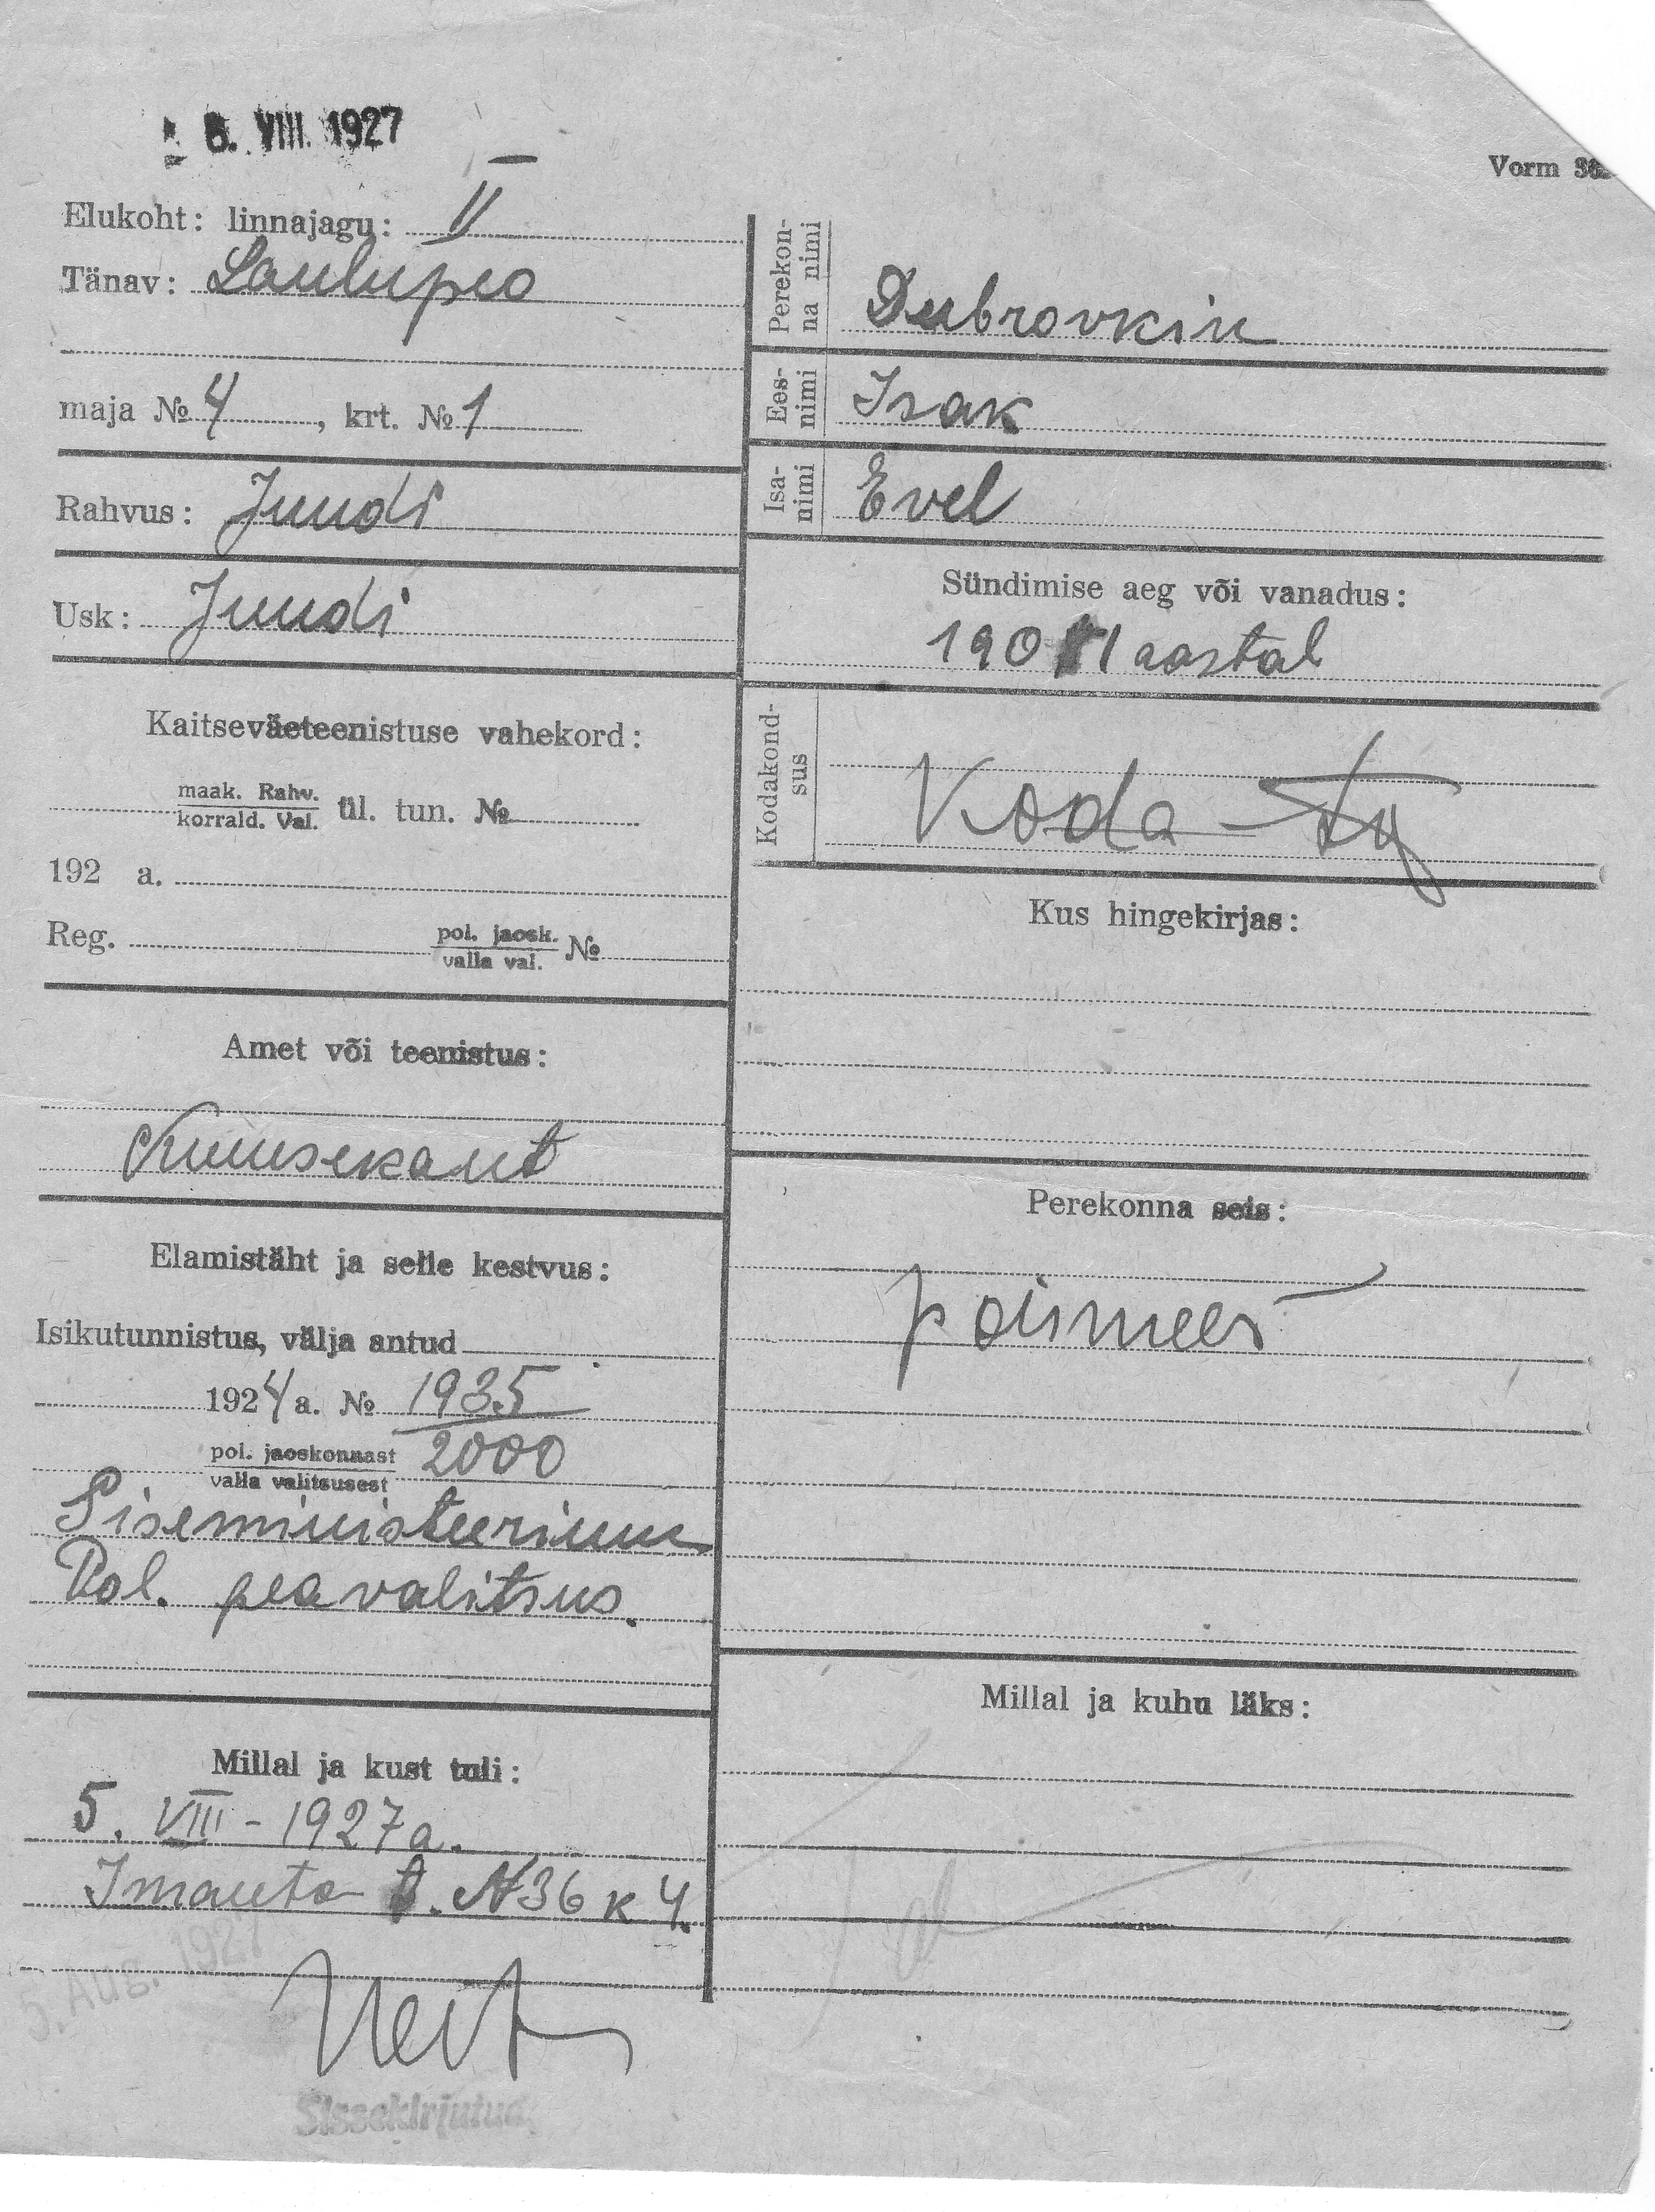 5. VIII. 1927
Vorm
Elukoht: linnajagu: II
Tänav: Laulupeo
maja № 4, krt. № 1
Rahvus: Juudi
Usk: Juudi
Kaitseväeteenistuse vahekord:
maak. Rahv.
korrald. Val. ül. tun. №
192 a.
Reg. pol. jaosk.
valla val. №
Amet või teenistus:
Muusekant
Elamistäht ja selle kestvus:
Isikutunnistus, välja antud
1924 a. № 1935
pol. jaoskonnast 2000
valla valitsusest
Siseministeerium
Pol. peavalitsus.
Millal ja kust tuli:
5. VIII - 1927 a.
Imanta t. N36 k 4.
5. Aug. 1927
Sissekirjutud
Perekonna nimi Dubrovkin
Eesnimi Isak
Isanimi Evel
Sündimise aeg või vanadus:
1901 aastal
Kodakondsus
Koda
Kus hingekirjas:
Perekonna seis:
poismees
Millal ja kuhu läks: